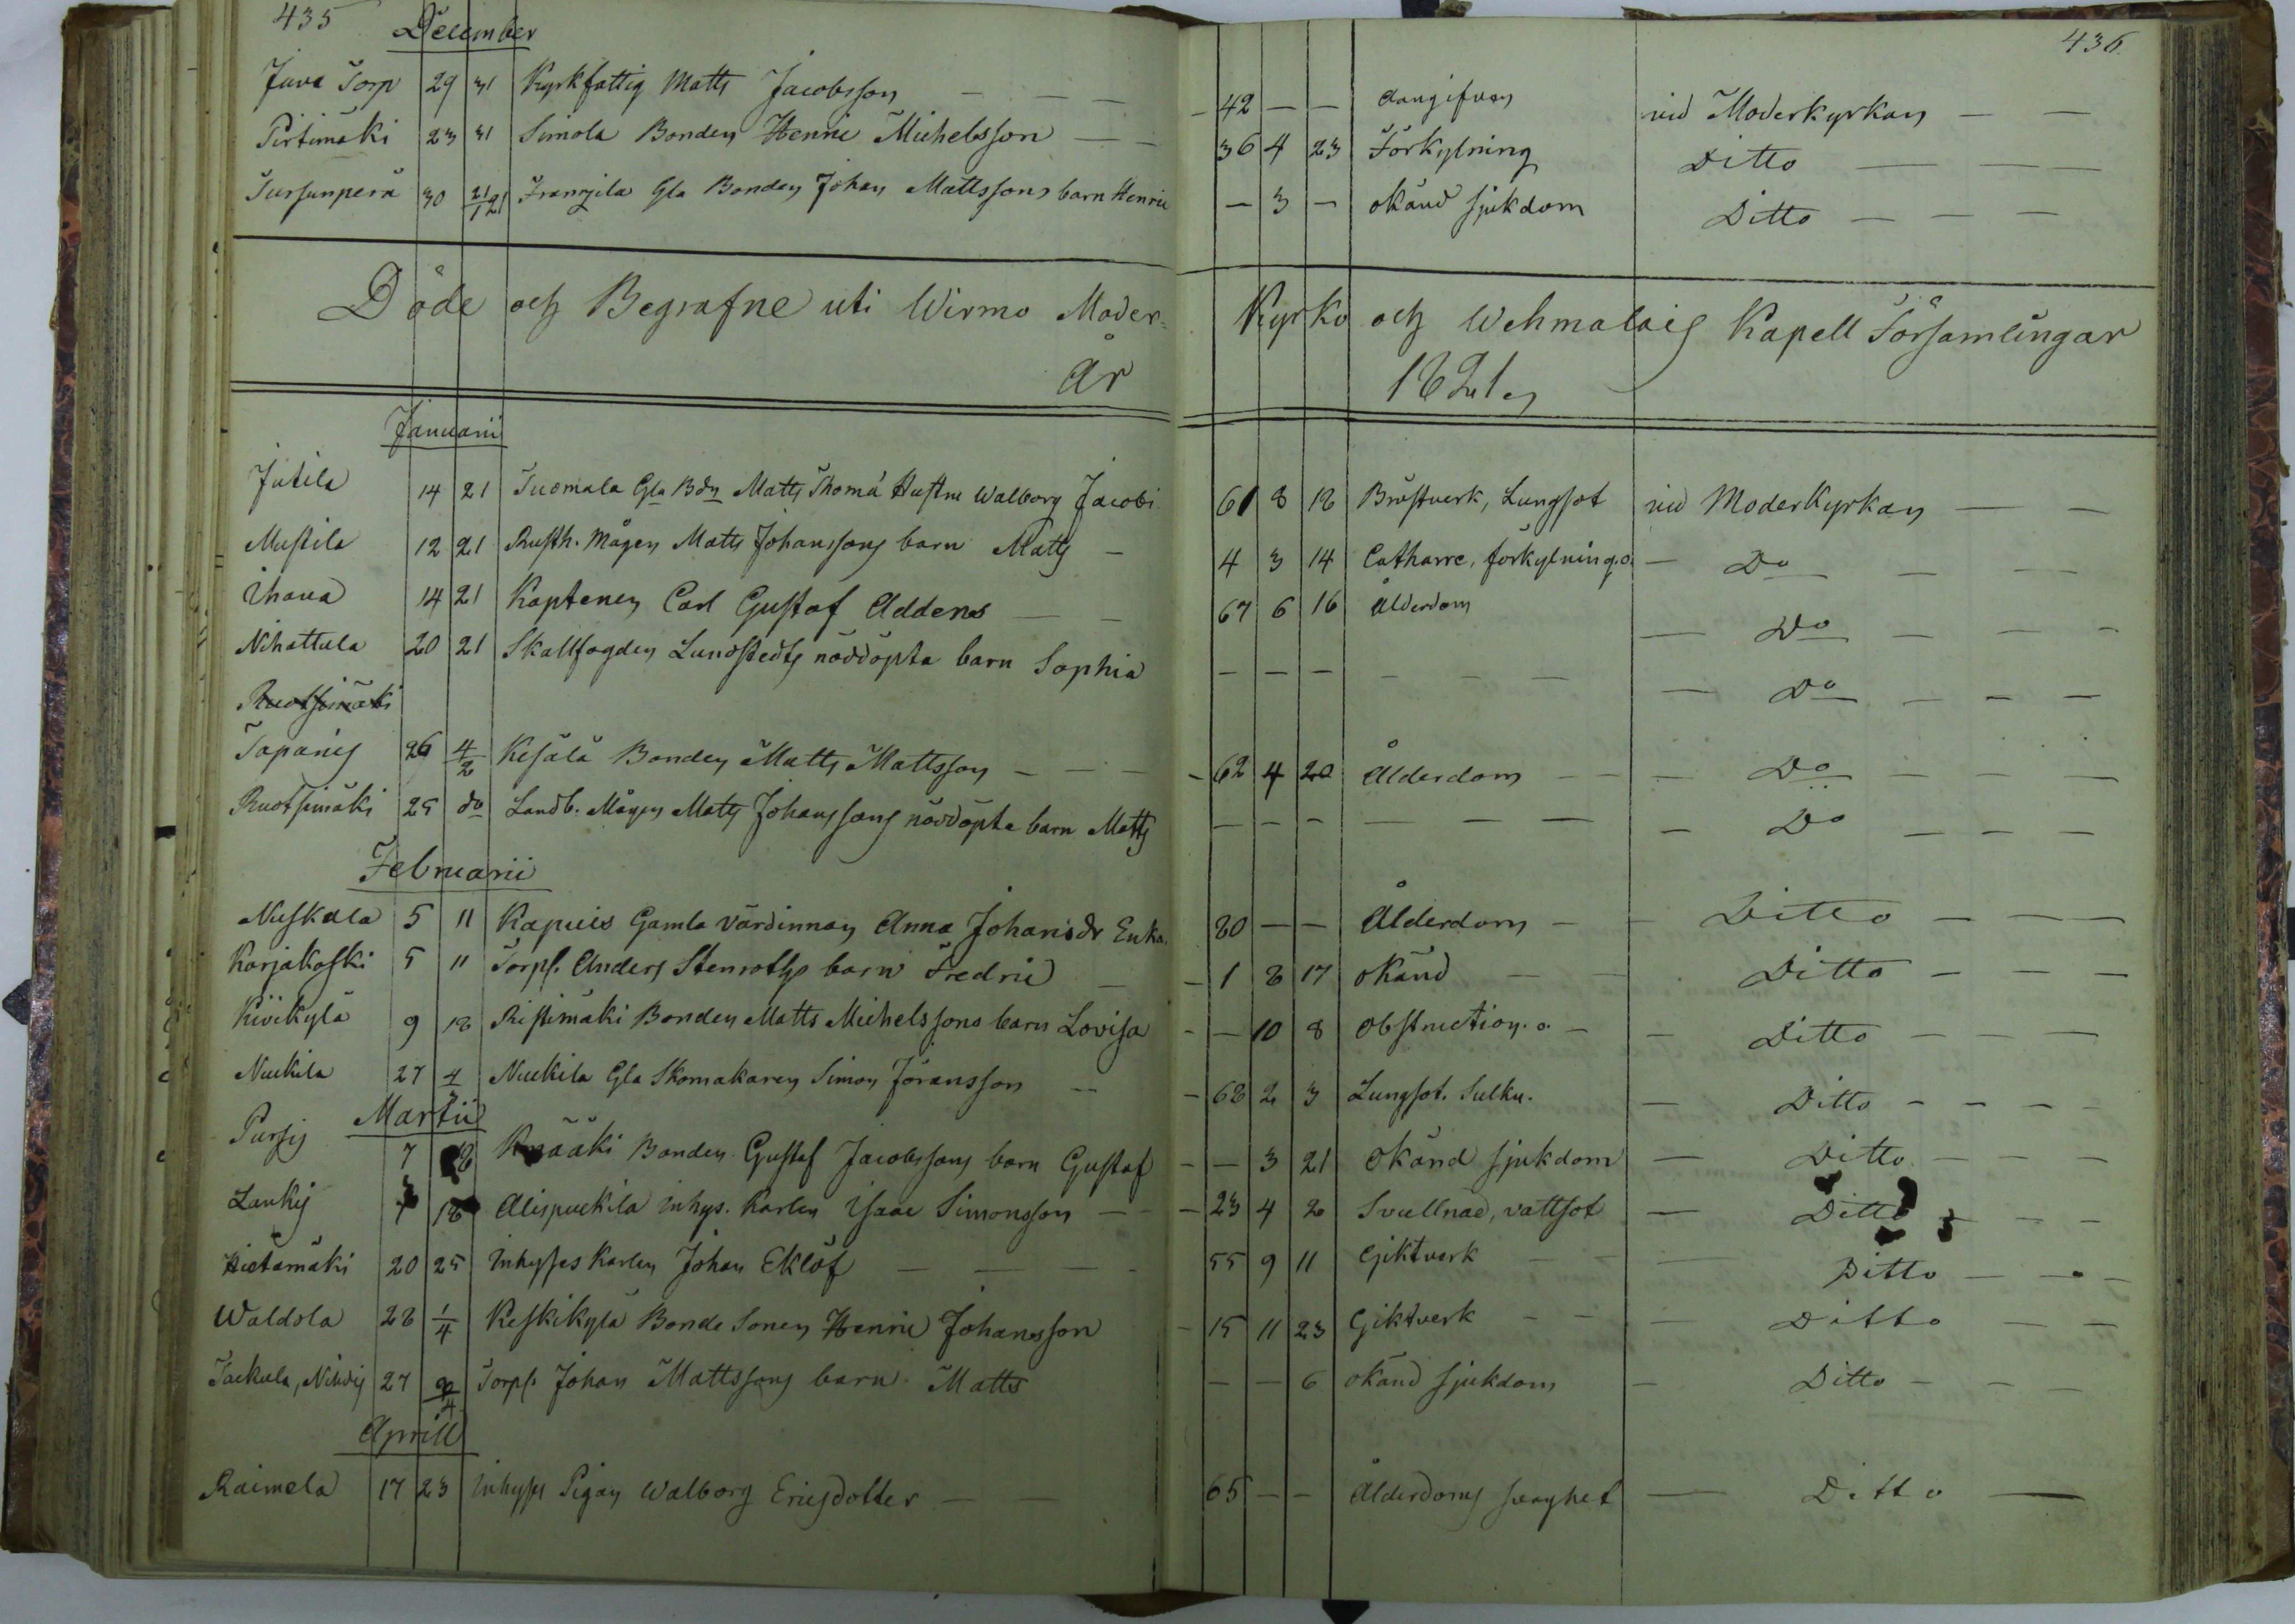 435 December
Java Torp 29 31 Kyrkfattig Matts Jacobsson — — — 42 — — Aangifven vid Moderkyrkan — —
Pirtimäki 23 31 Simola Bonden Henric Michelsson — — 36 4 23 Förkylning Ditto — — —
Tursunperä 30 21/1 21 Franzila Gla Bonden Johan Mattssons barn Henric — 3 — okänd sjukdom Ditto — — —
436
Döde och Begrafne uti Wirmo Moder= Kyrko och Wehmalais Kapell Församlingar
År 1821
Januarii
Jutila 14 21 Tuomala Gla Bdn Matts Thomæ Hustru Walborg Jacobi 61 8 18 Bröstverk, Lungsot vid Moderkyrkan — —
Mustila 12 21 Rusth. Mågen Matts Johanssons barn Matts — 4 3 14 Catharre, förkylning.o. — Do — —
Ihava 14 21 Kaptenen Carl Gustaf Addens — — 67 6 16 Ålderdom — Do — — —
Nihattula 20 21 Skallfogden Lundstedts nöddöpta barn Sophia — — — — — — — Do — — —
Ruotsimäki
Tapanis 26 4/2 Kesälä Bonden Matts Mattsson — — — 62 4 20 Ålderdom — — — Do — — —
Ruotsimäki 25 do Landb. Mågen Matts Johanssons nöddöpta barn Matts — — — — — — — Do — — —
Februarii
Nuskala 5 11 Kapuis Gamla värdinnan Anna Johansdr Enka. 80 — — Ålderdom — — Ditto — — —
Karjakoski 5 11 Torpf. Anders Stenroths barn Fredric — — 1 8 17 okänd — — Ditto — — —
Kivikylä 9 18 Ristimäki Bonden Matts Michelssons barn Lovisa — — 10 8 Obstruction. o. — — Ditto — — —
Nuckila 27 4/3 Nuckila Gla Skomakaren Simon Jöransson — — 68 2 3 Lungsot. Sulku. — Ditto — — — —
Martii
Pursi 7 18 Knääki Bonden Gustaf Jacobssons barn Gustaf — — 3 21 Okänd sjukdom — Ditto — — —
Lauki 7 18 Alispuckila Inhys. Karlen Isaac Simonsson — — — 23 4 2 Svullnad, vattsot — Ditto — — —
Hietämäki 20 25 Inhysses Karlen Johan Eklöf — — — — 55 9 11 Giktverk — — — Ditto — — —
Waldola 28 1/4 Keskikylä Bonde Sonen Henric Johansson — 15 11 23 Giktverk — — — Ditto — —
27 /4 Torpf. Johan Mattssons barn Matts — — 6 okänd sjukdom — Ditto — — —
Aprill
Raimela 17 23 Inhyses Pigan Walborg Ericsdotter — — 65 — — Ålderdoms svaghet — Ditto —